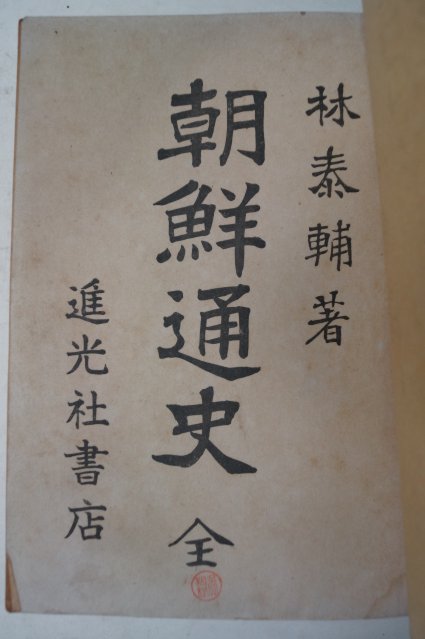 林泰輔著
朝鮮通史 全
進光社書店